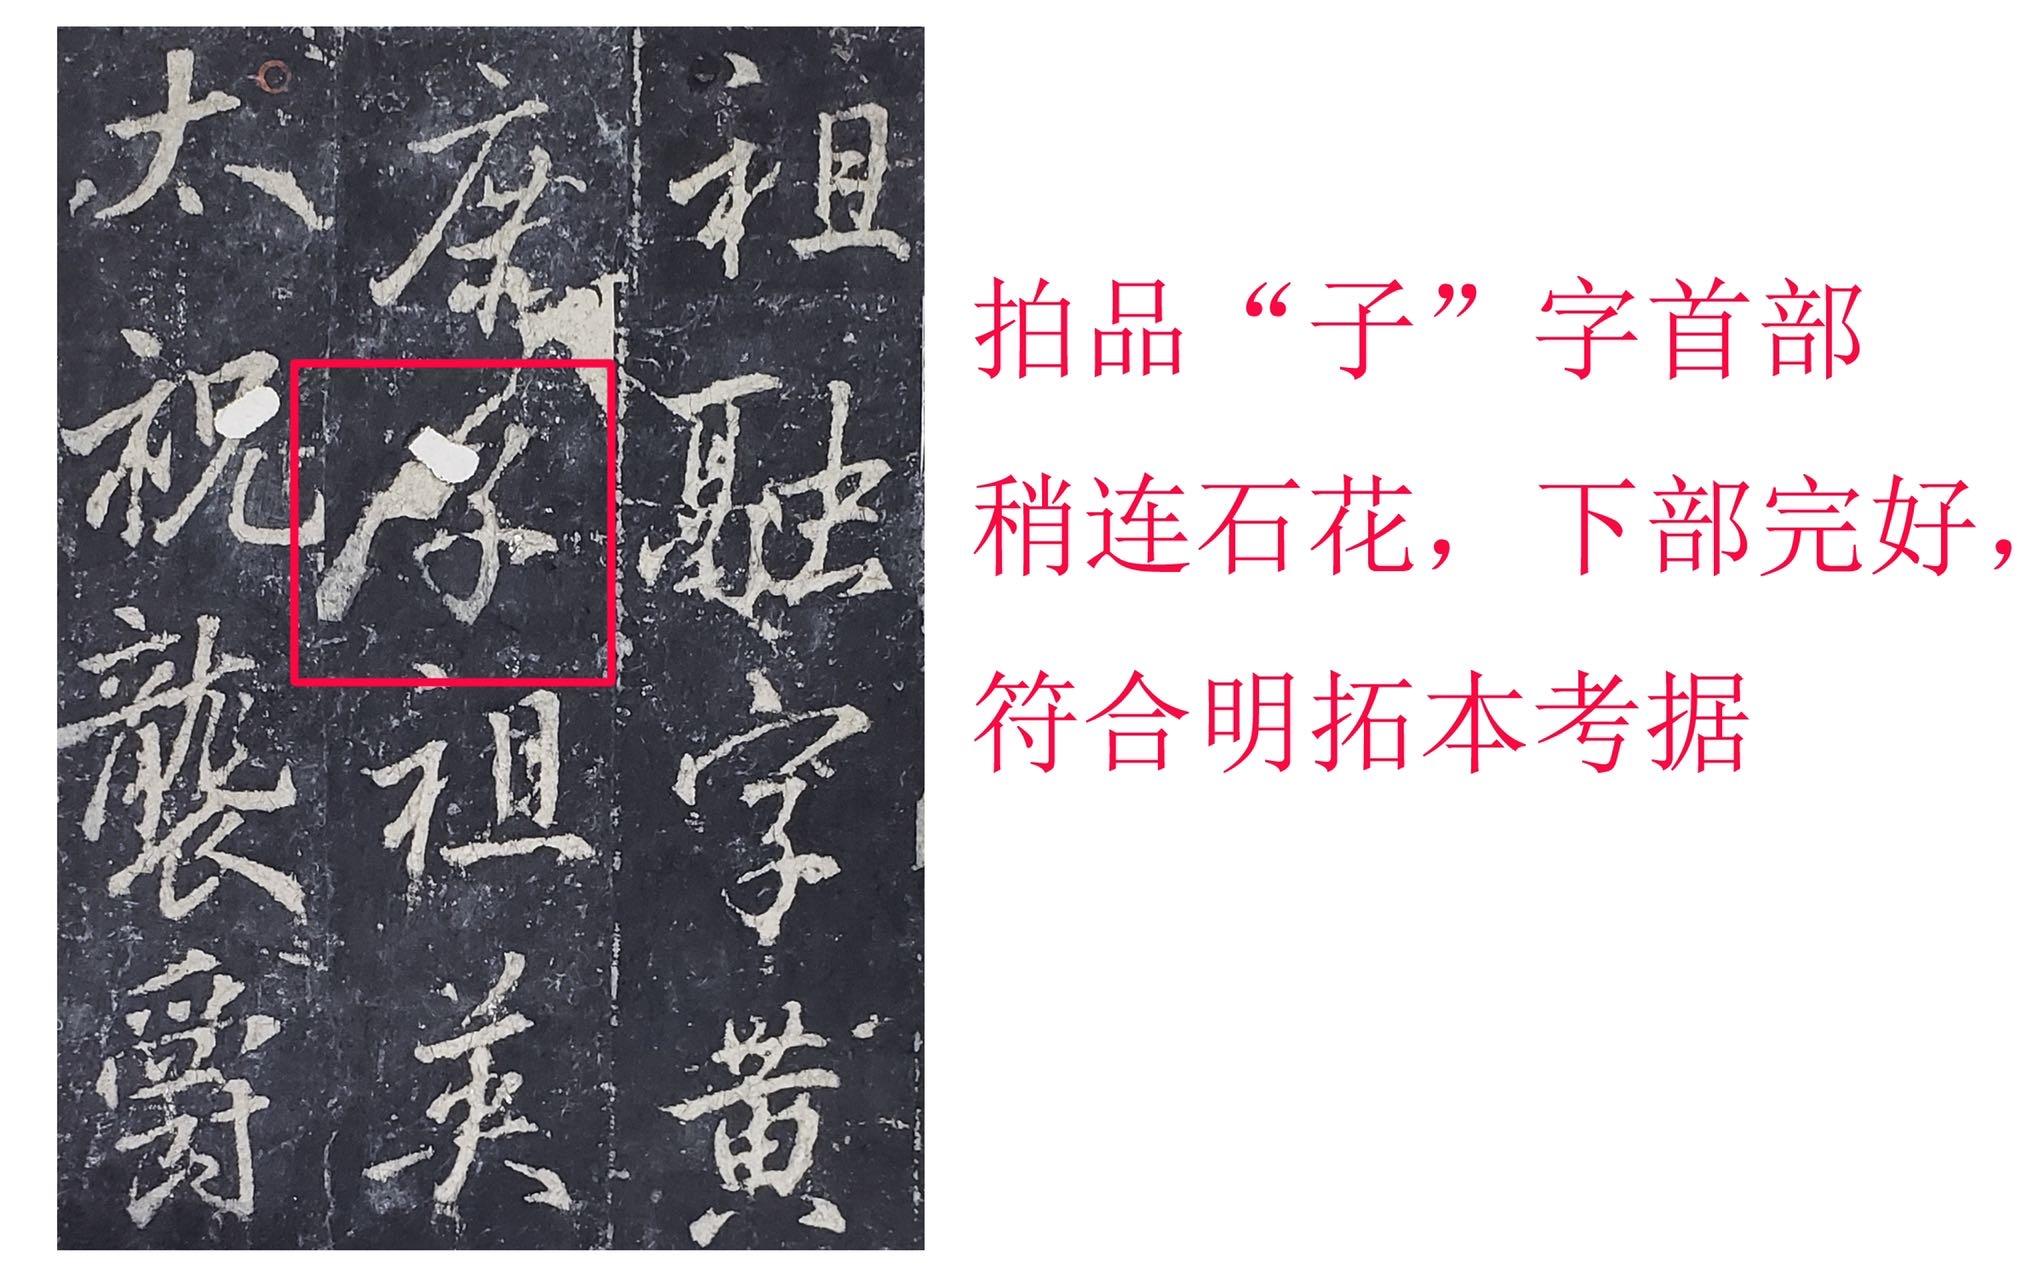 祖融字黄
康子祖英
大祝襲爵
拍品“子”字首部
稍连石花，下部完好，
符合明拓本考据